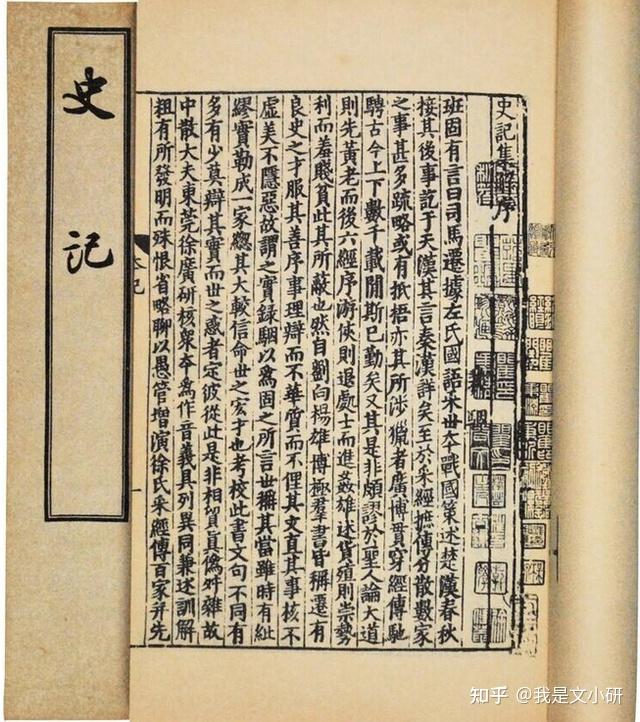 史記
史記集解序
班固有言曰司馬遷據左氏國語采丗本戰國策述楚漢春秋
接其後事訖于天漢其言秦漢詳矣至於采經摭傳分散數家
之事甚多疏略或有抵梧亦其所涉獵者廣博貫穿經傳馳
騁古今上下數千載閒斯已勤矣又其是非頗謬於聖人論大道
則先黃老而後六經序游俠則退處士而進姦雄述貨殖則崇勢
利而羞賤貧此其所蔽也然自劉向楊雄博極羣書皆稱遷有
良史之才服其善序事理辯而不華質而不俚其文直其事核不
虛美不隱惡故謂之實錄駰以爲固之所言丗稱其當雖時有紕
繆實勒成一家總其大較信命丗之宏才也考校此書文句不同有
多有少莫辯其實而丗之惑者定彼從此是非相貿真僞舛雜故
中散大夫東莞徐廣研核衆本爲作音義具列異同兼述訓解
粗有所發明而殊恨省略聊以愚管增演徐氏采經傳百家并先
知乎 @我是文小研